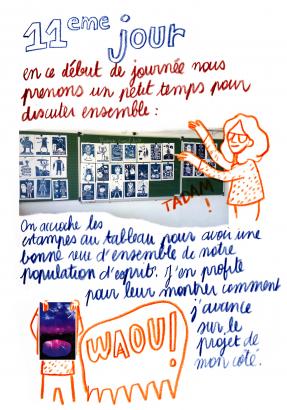 11eme jour
en ce début de journée nous
prenons un petit temps pour
discuter ensemble :
TADAM !
On accroche les
estampes au tableau pour avoir une
bonne vue d'ensemble de notre
population d'esprit. J'en profite
pour leur montrer comment
j'avance
sur le
projet de
mon côté.
WAOU!